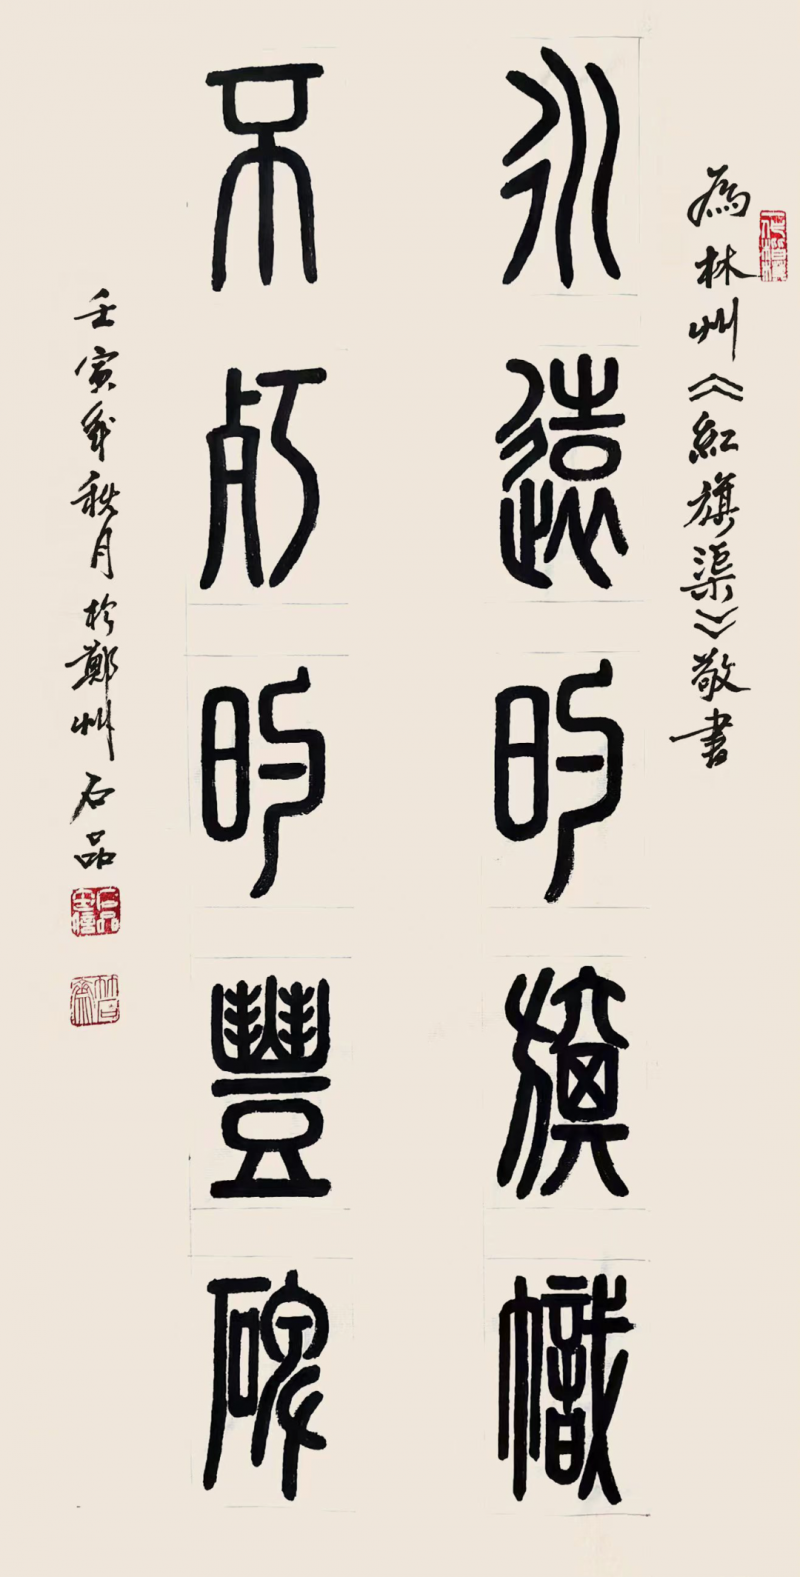 為林州《紅旗渠》敬書
永遠的旗幟
不朽的豐碑
壬寅年秋月於鄭州石品